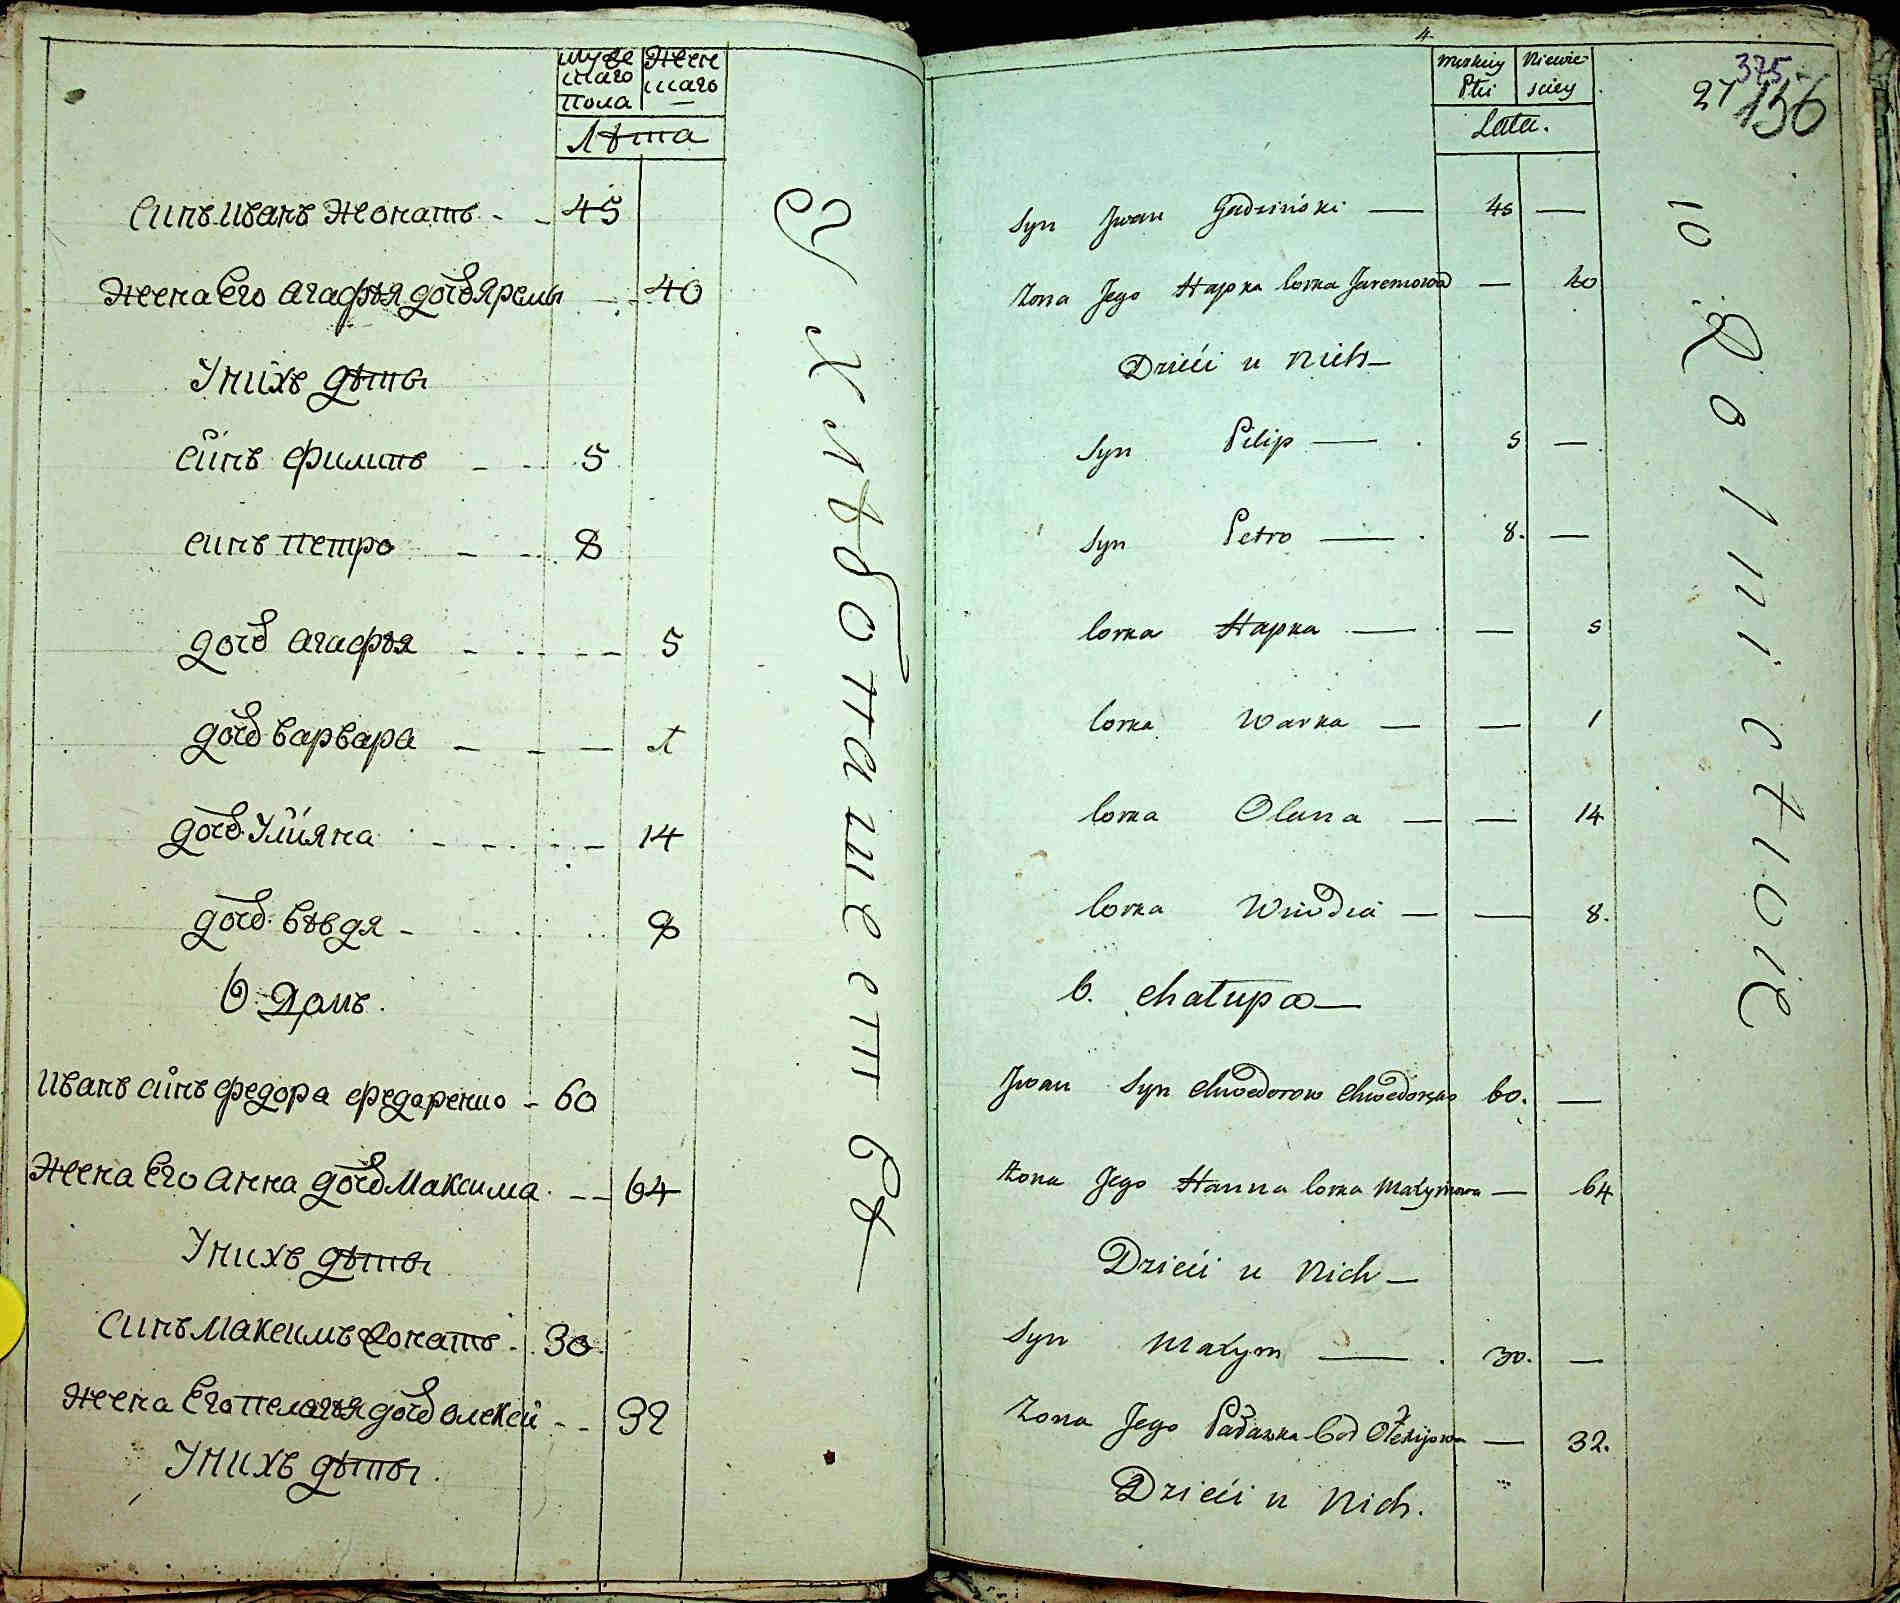 муже
скаго
пола
жен
скаго
Лѣта
синъ иванъ жонатъ 45
жена его агафѣя дочъ яремы 40
У нихъ дѣты
синъ филипъ 5
синъ петро 8
дочъ агафѣя 5
дочъ варвара 1
дочъ Улияна 14
дочъ вѣвдя 8
6 Домъ.
иванъ синъ федора федоренко 60
жена его анна дочъ максима 64
У нихъ дѣты
синъ максимъ жонатъ 30
жена его пелагѣя дочъ олексѣй 32
У нихъ дѣты.
У хлѣбопашеств
4.
Męskiey
Płci
Niewie-
sciey
Lata.
375
27 156
Syn Jwan Gadziński — 45 —
Żona Jego Hapka Corka Jaremowa — 40
Dzieći u Nich —
Syn Pilip — 5 —
Syn Petro — 8. —
Corka Hapka — — 5
Corka Warka — — 1
Corka Olana — — 14
Corka Wiwdia — — 8.
6. Chałupa —
Jwan Syn Chwedorow Chwedorenko 60. —
Żona Jego Hanna Corka Maxymowa — 64
Dzieći u Nich —
Syn Maxym — 30. —
Żona Jego Pałaszka Cod Olexijowa — 32.
Dzieći u Nich.
10 Rolnictwie